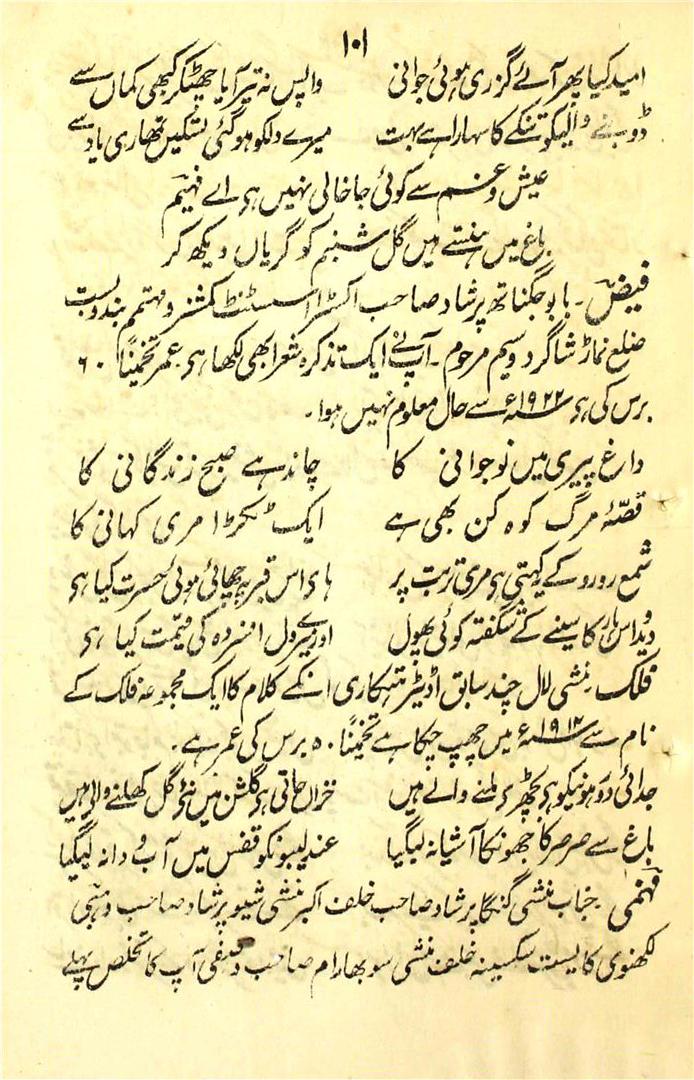 ۱۰۱
امید کیا پھر آئے گزری ہوئی جوانی واپس نہ تیر آیا چھٹکر کبھی کماں سے
ڈوبنے والیکو تنکے کا سہارا ہے بہت میرے دلکو ہو گئی تسکیں تمھاری یاد سے
عیش و غم سے کوئی جا خالی نہیں ہی اے فہیم
باغ میں ہنستے ہیں گل شبنم کو گریاں دیکھ کر
فیض۔ بابو جگناتھ پرشاد صاحب اکسٹرا اسسٹنٹ کمشنر و مہتمم بندوبست
ضلع نماڑ شاگرد وسیم مرحوم۔ آپ نے ایک تذکرہ شعرا بھی لکھا ہی عمر تخمیناً ۶۰
برس کی ہی ۱۹۲۲ء سے حال معلوم نہیں ہوا۔
داغ پیری میں نوجوانی کا چاند ہے صبح زندگانی کا
قصّۂ مرگ کوہ کن بھی ہے ایک ٹکڑا مری کہانی کا
شمع رو رو کے یہ کہتی ہی مری تربت پر ہای اس قبر پہ چھائی ہوئی حسرت کیا ہی
دیدو اس ہار کا سینے کے شگفتہ کوئی پھول اور میرے دل افسردہ کی قیمت کیا ہی
فلک۔ منشی لال چند سابق اڈیٹر انکے کلام کا ایک مجموعہ فلک کے
نام سے ۱۹۱۲ء میں چھپ چکا ہے تخمیناً ۵۰ برس کی عمر ہے۔
جدائی دور ہونیکو ہی بچھڑے ملنے والے ہیں خزاں جاتی ہی گلشن میں نئے گل کھلنے والے ہیں
باغ سے صرصر کا جھونکا آشیانہ لیگیا عندلیبونکو قفس میں آب و دانہ لیگیا
فہمی جناب منشی گنگا پرشاد صاحب خلف اکبر منشی شیو پرشاد صاحب وہبی
لکھنوی کایستھ سکسینہ خلف منشی سوبھارام صاحب آپ کا تخلص پہلے